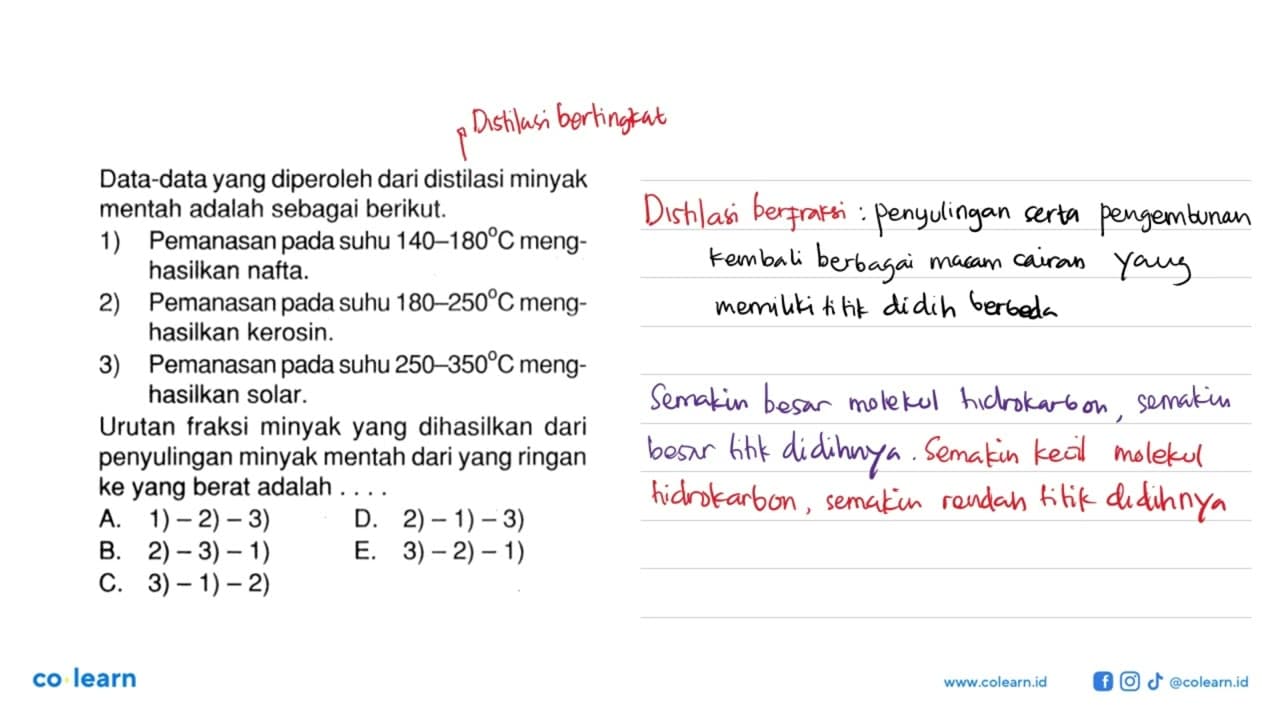 Distilasi bertingkat
Data-data yang diperoleh dari distilasi minyak
mentah adalah sebagai berikut.
1) Pemanasan pada suhu 140–180°C meng-
hasilkan nafta.
2) Pemanasan pada suhu 180–250°C meng-
hasilkan kerosin.
3) Pemanasan pada suhu 250–350°C meng-
hasilkan solar.
Urutan fraksi minyak yang dihasilkan dari
penyulingan minyak mentah dari yang ringan
ke yang berat adalah . . . .
A. 1) – 2) – 3) D. 2) – 1) – 3)
B. 2) – 3) – 1) E. 3) – 2) – 1)
C. 3) – 1) – 2)
Distilasi berfraksi : penyulingan serta pengembunan
kembali berbagai macam cairan yang
memiliki titik didih berbeda
Semakin besar molekul hidrokarbon, semakin
besar titik didihnya. Semakin kecil molekul
hidrokarbon, semakin rendah titik didihnya
co learn
www.colearn.id @colearn.id